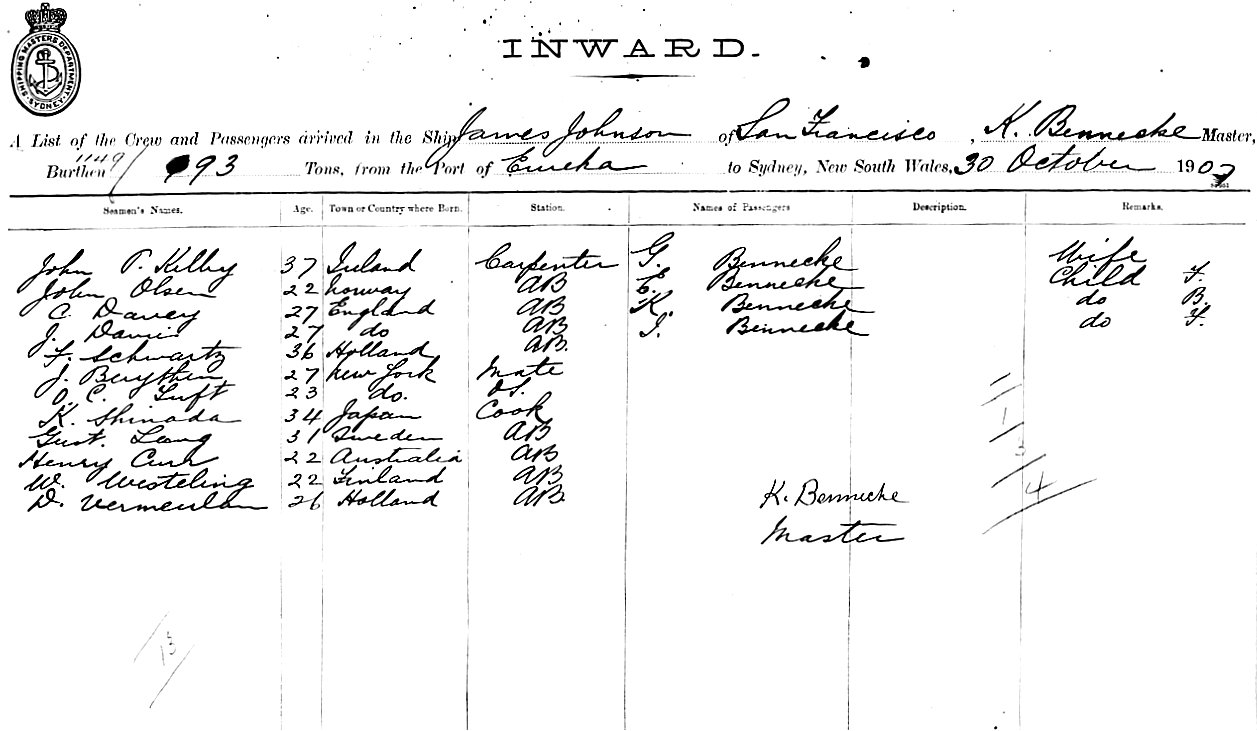 SHIPPING MASTERS DEPARTMENT SYDNEY
INWARD.
A List of the Crew and Passengers arrived in the Ship James Johnson of San Francisco, K. Bennecke Master,
1149/
Burthen 993 Tons, from the Port of Eureka to Sydney, New South Wales, 30 October 190
Seamen's Names. Age. Town or Country where Born. Station. Names of Passengers Description. Remarks.
John P. Kilby 37 Ireland Carpenter G. Bennecke Wife
John Olsen 22 Norway AB E. Bennecke Child F.
C. Davey 27 England AB K. Bennecke do B.
J. Davis 27 do AB I. Bennecke do F.
F. Schwartz 36 Holland AB.
J. 27 New York Mate
O. C. Tuft 23 do. OS.
K. Shinada 34 Japan Cook
Gust. Lang 31 Sweden AB
Henry Curr 22 Australia AB
W. Westeling 22 Finland AB
D. Vermeulen 26 Holland AB.
1
3
4
K. Bennecke
Master
13